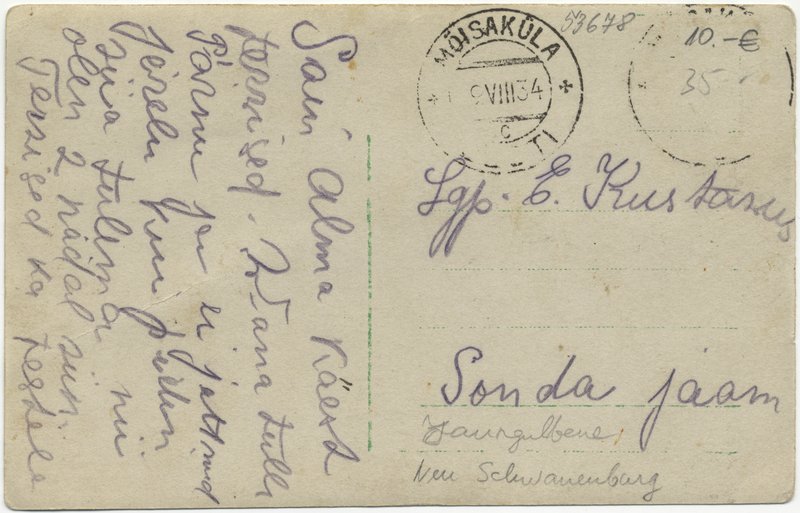 Sain Alma käest
terrised. Wana tulli
Pärnu ja ei jätnud
järele kui pidin
siia tulema nii
olen 2 nädal siin.
Tersised ka teistele
MÕISAKÜLA
9 VIII 34
C
53678
10.-€
35
Lgp. E. Kustasus
Sonda jaam
Jaungulbene
Neu Schwanenburg